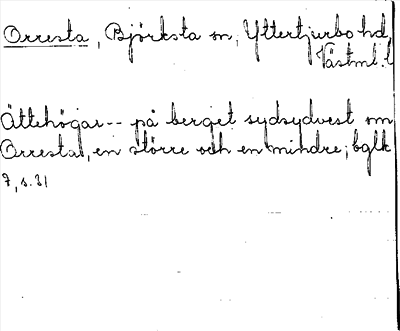 Orresta, Björksta sn, Yttertjurbo hd,
Västml. l
Ättehögar -- på berget sydsydvest om
Orresta, en större och en mindre; bglk
7, s. 31